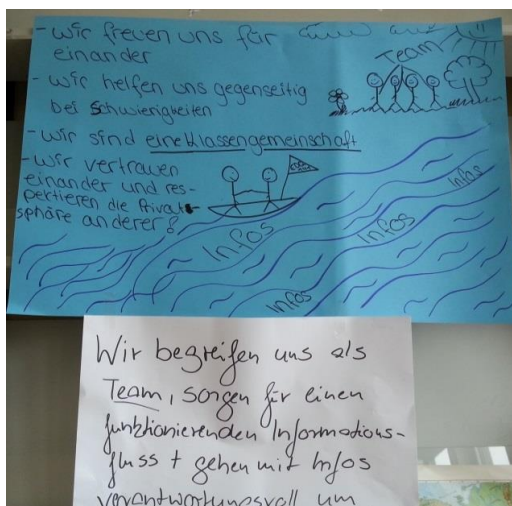 - wir freuen uns für
einander
- wir helfen uns gegenseitig
bei Schwierigkeiten
- wir sind eine Klassengemeinschaft
- wir vertrauen
einander und res-
pektieren die Privat-
sphäre anderer!
Team
Infos
Infos
Infos
Infos
Wir begreifen uns als
Team, sorgen für einen
funktionierenden Informations-
fluss + gehen mit Infos
verantwortungsvoll um